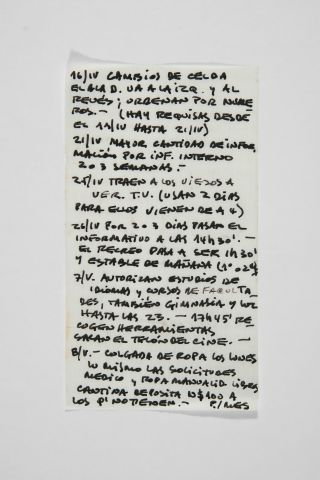 16/IV CAMBIOS DE CELDA
EL ALA D. VA A LA IZQ. Y AL
REVÉS; ORDENAN POR NUME
ROS.- (HAY REQUISAS DESDE
EL 15/IV HASTA 21/IV)
21/IV MAYOR CANTIDAD DE INFOR
MACIÓN POR INF. INTERNO
2 O 3 SEMANAS.-
25/IV TRAEN A LOS VIEJOS A
VER T.V. (USAN 2 DÍAS
PARA ELLOS VIENEN DE A 4)
26/IV POR 2 O 3 DÍAS PASAN EL
INFORMATIVO A LAS 14H30'.-
EL RECREO PASA A SER 1H30'
Y ESTABLE DE MAÑANA
7/V. AUTORIZAN ESTUDIOS DE
IDIOMAS Y CURSOS DE FACULTA
DES, TAMBIÉN GIMNASIA Y LUZ
HASTA LAS 23.- 17H45' RE
COGEN HERRAMIENTAS
SACAN EL TELÓN DEL CINE.-
8/V.- COLGADA DE ROPA LOS LUNES
LO MISMO LAS SOLICITUDES
MEDICO Y ROPA MANUALID LIBRES
CANTINA DEPOSITA N$100 A
LOS P' NO TIENEN.- P/MES